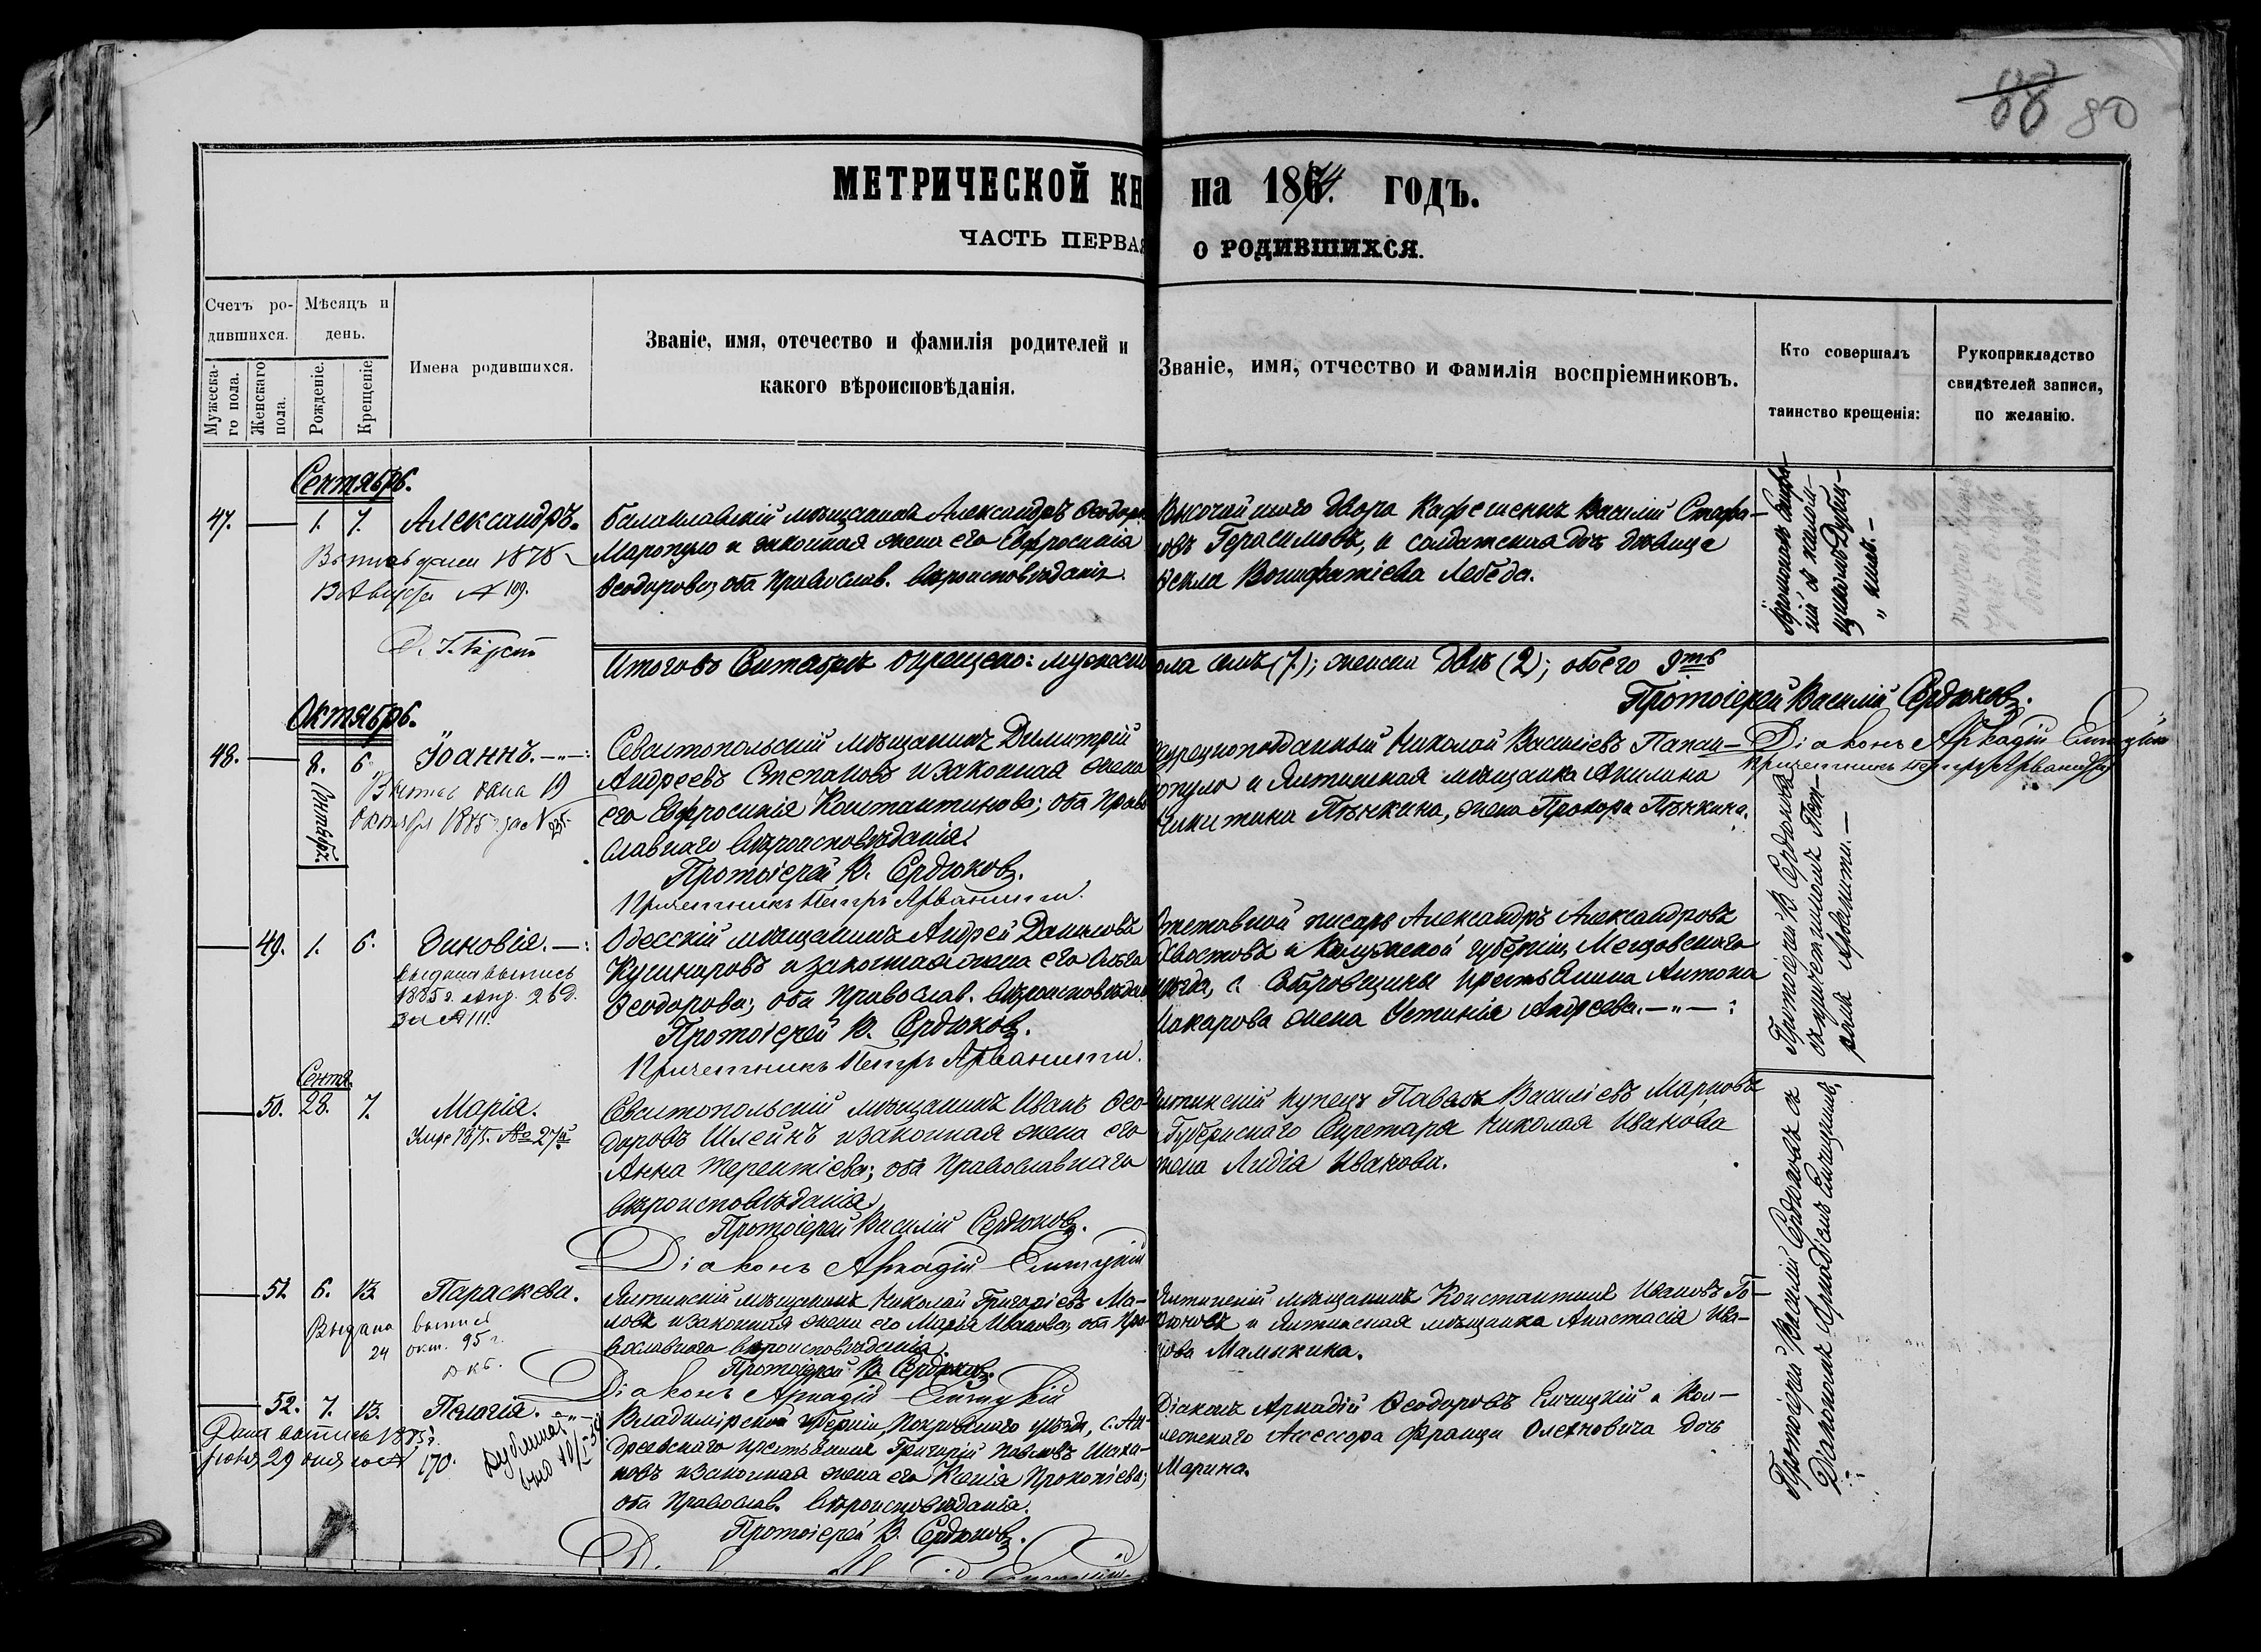 88 80
МЕТРИЧЕСКОЙ КН на 1874. годъ.
ЧАСТЬ ПЕРВАЯ о РОДИВШИХСЯ.
Счетъ ро-
дившихся.
Мѣсяцъ и
день.
Мужеска-
го пола.
Женскаго
пола.
Рожденіе.
Крещеніе
Имена родившихся.
Званіе, имя, отечество и фамилія родителей и
какого вѣроисповѣданія.
Званіе, имя, отчество и фамилія воспріемниковъ.
Кто совершалъ
таинство крещенія:
Рукоприкладство
свидѣтелей записи,
по желанію.
Сентябрь.
47. 1. 7. Александръ.
1878
13 Августа № 109.
Балаклавскій мѣщанинъ Александръ Ѳеодоро
Маропуло и законная жена его Евфросинія
Ѳеодорова, оба Православ. вѣроисповѣданія.
Высочайшаго Двора Кафешенкъ Василій Стефа-
новъ Герасимовъ, и солдатская дочь дѣвица
Ѳекла Вонифатіева Лебеда.
Итого въ Сентябрѣ крещено: мужеск
пола семь (7); женски двѣ (2); обоего 9ть
Протоіерей Василій Сердюковъ.
Октябрь.
48. 8. Сентябрь. 6. Іоаннъ.
Выпись дана 19
Октября 1885 за № 235.
Севастопольскій мѣщанинъ Димитрій
Андреевъ Степановъ и законная жена
его Евфросинія Константинова; оба Право
славнаго вѣроисповѣданія.
Протоіерей В. Сердюковъ.
Причетникъ Петръ Арванити.
Турецкоподданный Николай Васильевъ Папан-
допуло и Ялтинская мѣщанка Акилина
Никитина Пѣнкина, жена Прохора Пѣнкина.
Діаконъ Аркадій Синицкій
Причетникъ Петръ Арванити
Протоіерей В. Сердюковъ
съ причетникомъ Пет-
ромъ Арванити.
49. 1. 6. Зиновія.
выдана выпись
1885 г. Апр. 26 д.
За № 111.
Одесскій мѣщанинъ Андрей Даниловъ
Кушнировъ и законная жена его Ольга
Ѳеодорова; оба Православ. вѣроисповѣдан
Протоіерей В. Сердюковъ.
Причетникъ Петръ Арванити.
Отставной писарь Александръ Александровъ
Хвостовъ и Калужской губерніи, Мещовскаго
уѣзда, с. крестьянина Антона
Макарова жена Устинія Андреева.
Сентя.
50. 28. 7. Марія.
1875. № 27й
Севастопольскій мѣщанинъ Иванъ Ѳео-
доровъ Шлейнъ и законная жена его
Анна Терентіева; оба Православнаго
вѣроисповѣданія.
Протоіерей Василій Сердюковъ.
Діаконъ Аркадій Синицкій
Ялтинскій купецъ Павелъ Васильевъ Марковъ
Губернскаго Секретаря Николая Иванова
жена Лидія Иванова.
Протоіерей Василій Сердюковъ съ
Діакономъ Аркадіемъ Синицкимъ.
51. 6. 13. Параскева.
Выдана выпись
24 окт. 95 г.
Ялтинскій мѣщанинъ Николай Григоріевъ Ма-
ловъ и законная жена его Марія Иванова, оба Пра-
вославнаго вѣроисповѣданія.
Протоіерей В. Сердюковъ.
Діаконъ Аркадій Синицкій
Ялтинскій мѣщанинъ Константинъ Ивановъ Го-
рюновъ и Ялтинская мѣщанка Анастасія Ива-
нова Малыкина.
52. 7. 13. Пелагія.
Дана выпись 1885 г.
29 дня за № 170.
Владимірской губерніи, Покровскаго уѣзда, с. Ан-
дреевскаго крестьянинъ Григорій Павловъ
новъ и законная жена его Ксенія Прокопіева;
оба Православ. вѣроисповѣданія.
Протоіерей В. Сердюковъ.
Діаконъ Аркадій Ѳеодоровъ Синицкій и Кол-
лежскаго Ассесора Франца Олехновича дочь
Марина.